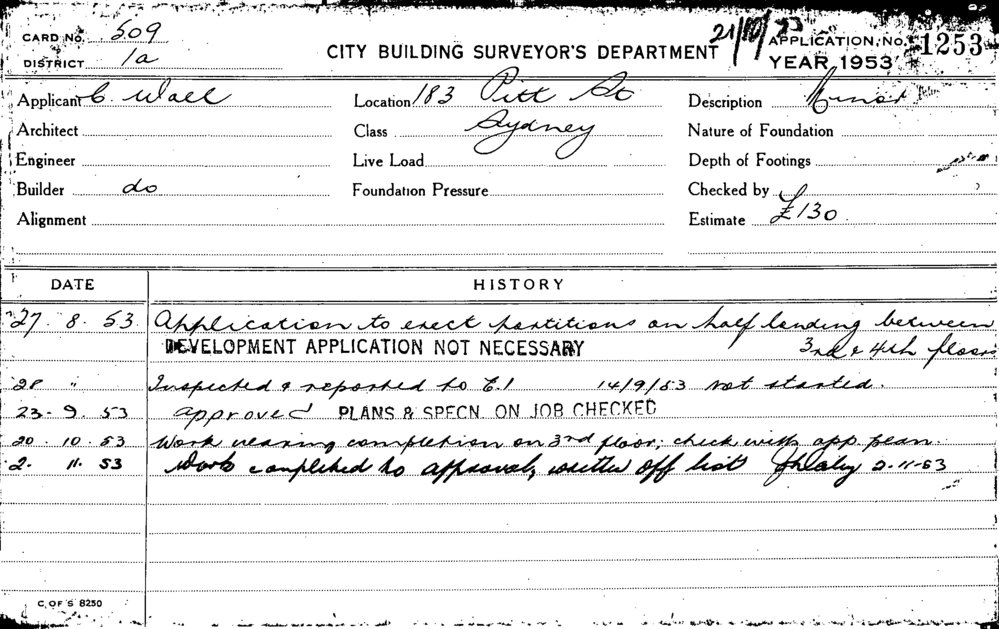 CARD No. 509
DISTRICT 1a
CITY BUILDING SURVEYOR'S DEPARTMENT
21/10/53
APPLICATION, No. 1253
YEAR 1953
Applicant C. Wall Location 183 Pitt St Description Minor
Architect Class Sydney Nature of Foundation
Engineer Live Load Depth of Footings
Builder do Foundation Pressure Checked by
Alignment Estimate £130
DATE HISTORY
27. 8. 53 Application to erect partitions on half landing between
DEVELOPMENT APPLICATION NOT NECESSARY 3rd & 4th floors
28 " Inspected & reported to E.1 14/9/53 not started.
23. 9. 53 approved PLANS & SPECN ON JOB CHECKED
20. 10. 53 Work nearing completion on 3rd floor; check with app. plan.
2. 11. 53 Work completed to approval, written off list 2-11-53
C. OF S 8250